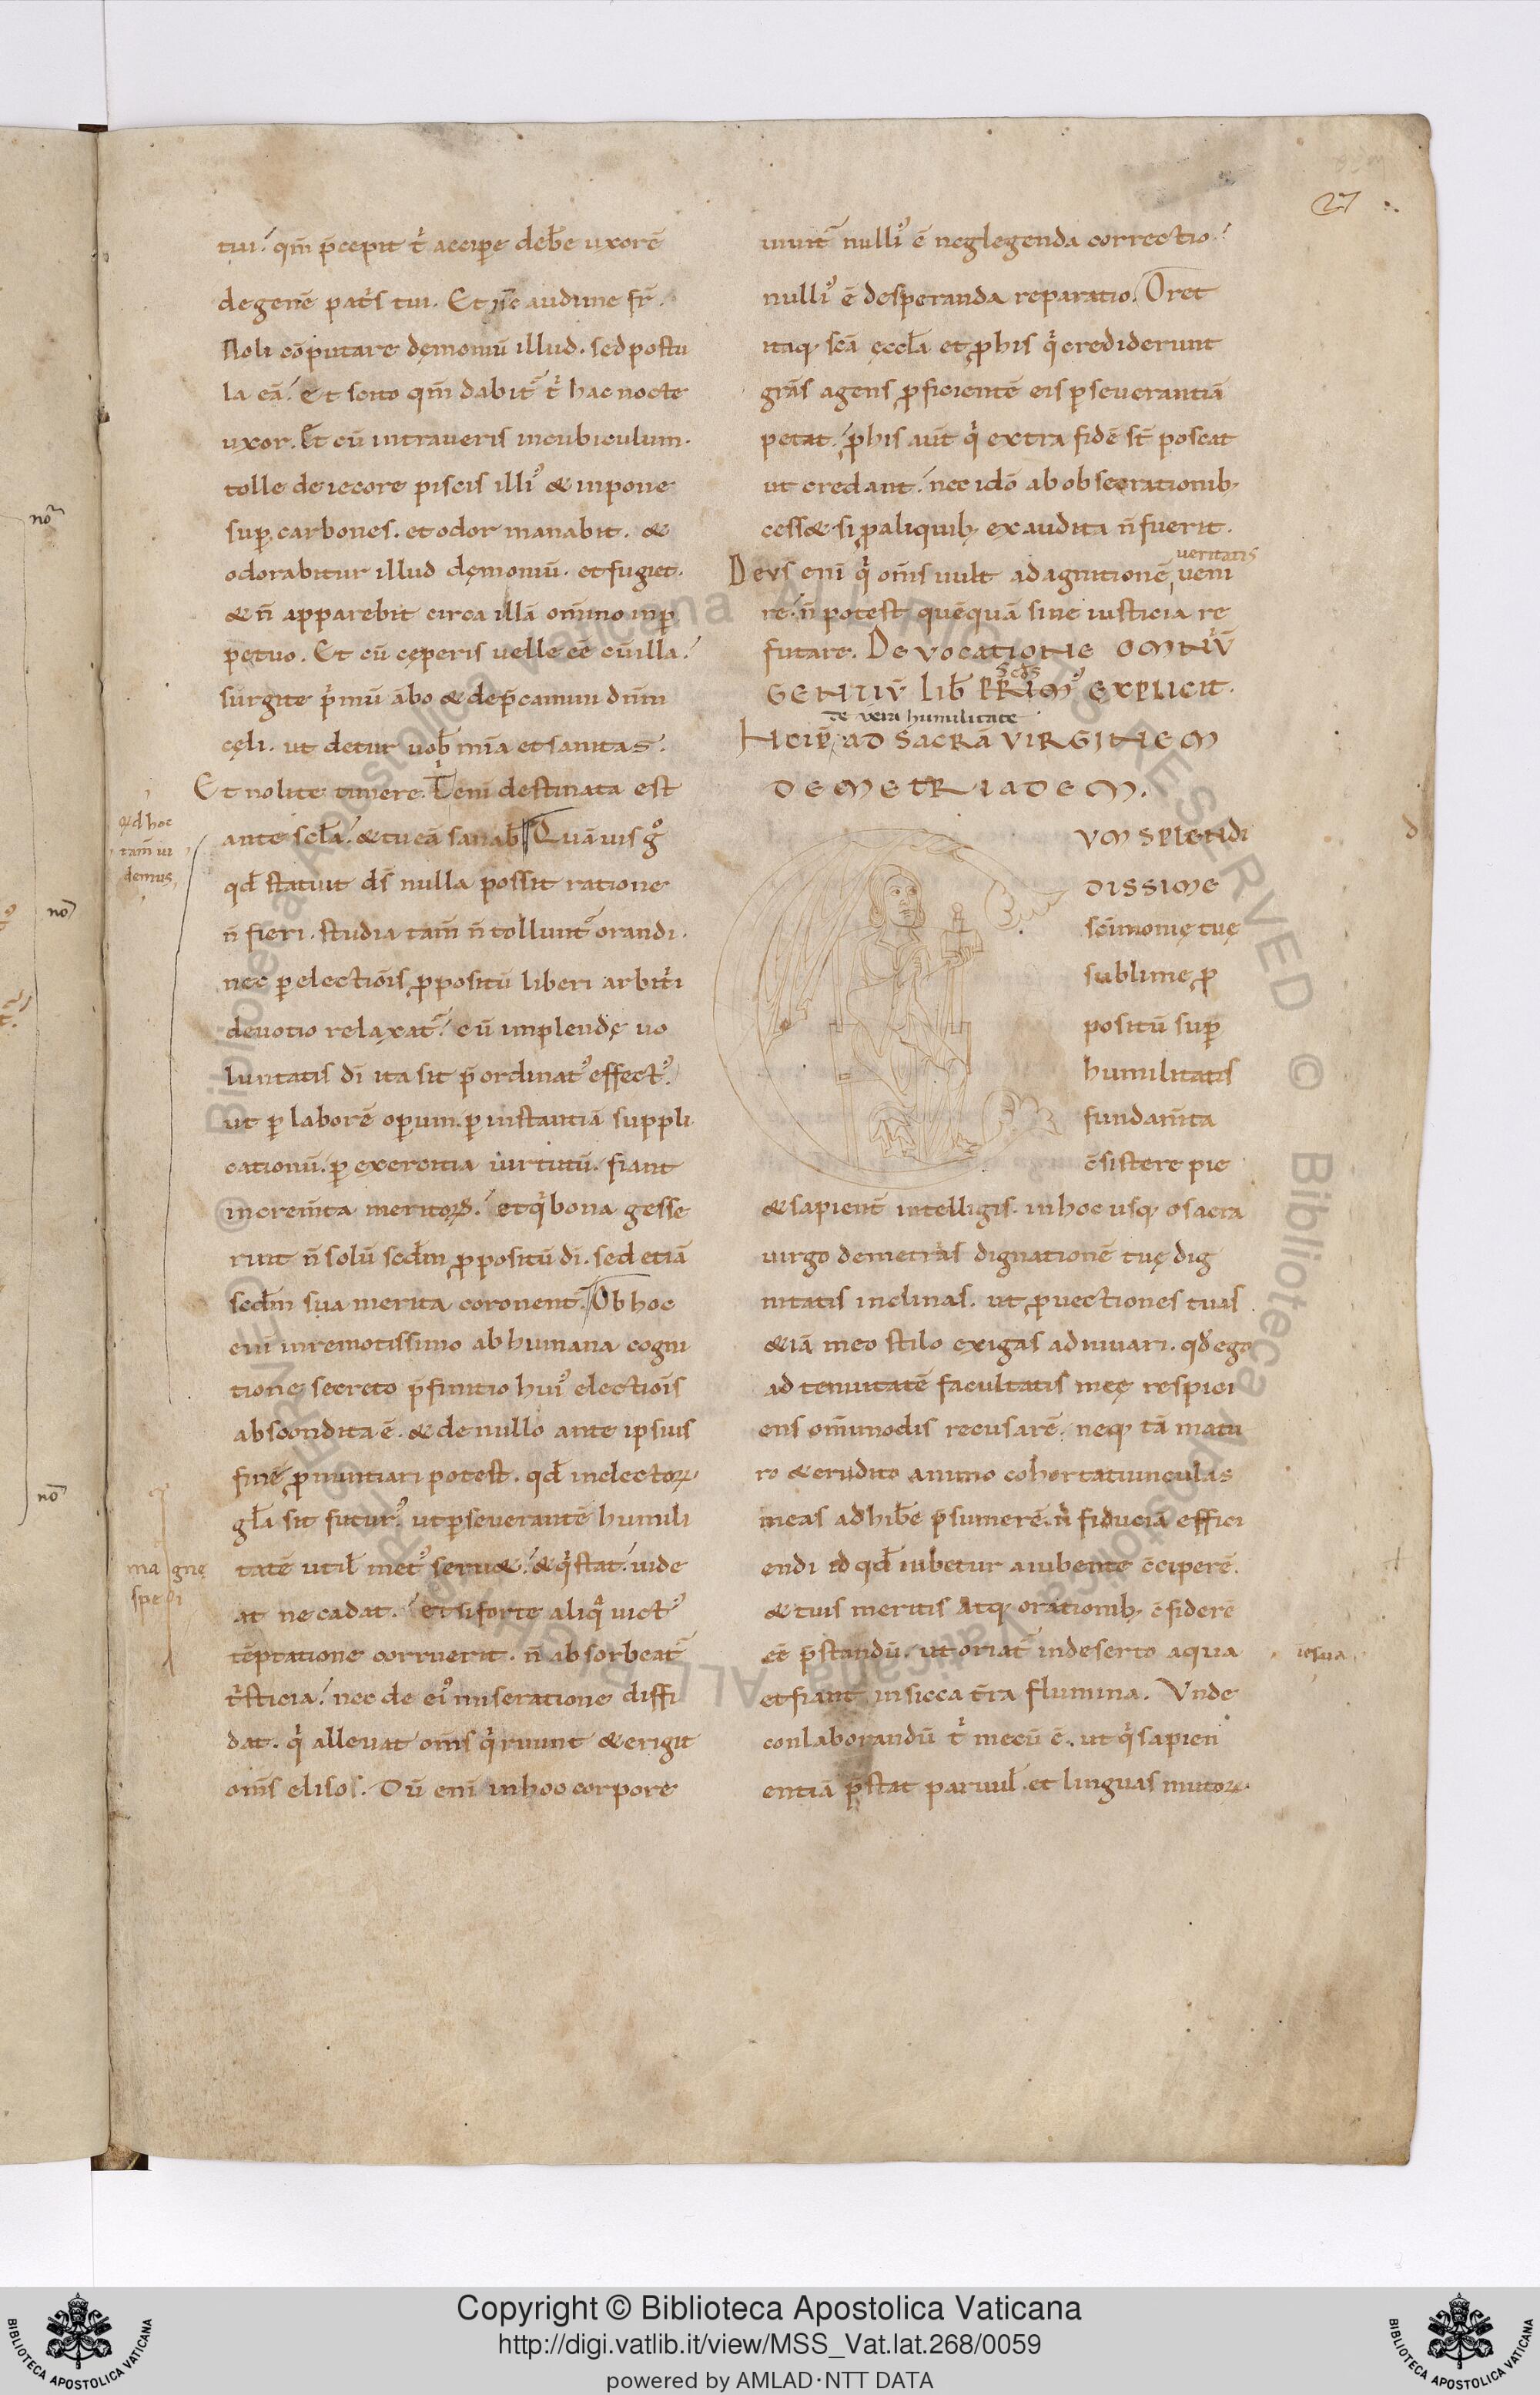 27
tui? qm̄ p̄cepit t̉ accipe deb̄e uxorē
degenē pat̉s tui. Et nc̄ audime fr̄.
Noli cōputare dęmoniū illud. sed postu
la eā? Et scito qm̄ dabit᷑ t̉ hac nocte
uxor. Et cū intraveris incubiculum.
tolle de iecore piscis illi᷒ & inpone
suꝑ carbones. et odor manabit. &
odorabitur illud dęmoniū. et fugiet.
& n̄ apparebit circa illā om̄ino inꝑ
petuo. Et cū cęperis uelle eē cū illa?
surgite p̉mū ābo & dep̄camini dn̄m
cęli. ut detur uob̄ mīa et sanitas.
Et nolite timere. T̉ enī destinata est
ante scl̄a? & tu eā sanab̄ Quāuis gͦ
qđ statuit ds̄ nulla possit ratione
n̄ fieri. studia tam̄ n̄ tollunt᷑ orandi.
nec ꝑ electiōis ꝓpositū liberi arbit̉i
devotio relaxat᷑? cū implendę uo
luntatis dī ita sit p̄ordinat᷒ effect᷒.
ut ꝑ laborē oꝑum. ꝑ instantiā suppli
cationū. ꝑ exercitia uirtutū. fiant
increm̄ta meritoꝝ? et q̉ bona gesse
runt n̄ solū scđm ꝓpositū dī. sed etiā
scđm sua merita coronent᷑. Ob hoc
enī inremotissimo ab humana cogni
tione secreto p̄finitio hui᷒ electiōis
abscondita ē. & de nullo ante ipsius
finē ꝓnuntiari potest. qđ inelectoꝝ
gl̄a sit futur᷒. ut ꝑseverantē humili
tatē util̄ met᷒ seruet? & q̉ stat? uide
at ne cadat? et si forte aliqͣ uict᷒
tēptatione corruerit. n̄ absorbeat᷑
t̉sticia? nec de ei᷒ miseratione diffi
dat. q̉ allevat om̄s q̉ ruunt & erigit
om̄s elisos. Dū enī inhoc corpore
qđ hoc
tam̄ ui
demus
magnę
spei
uiuit᷑ nulli᷒ ē neglegenda correctio?
nulli᷒ ē desperanda reparatio. Oret
itaq; scā ęccl̄a et ꝓ his q̉ crediderunt
grās agens ꝓficientē eis ꝑseverantiā
petat? ꝓ his aut̄ q̉ extra fidē st̄ poscat
ut credant? nec idō ab obsecrationib;
cesset si ꝓ aliquib; exaudita n̄ fuerit.
veritatis
Deus enī q̉ om̄s uult ad agnitionē ueni
re? n̄ potest quēquā sine iusticia re
futare. De vocatione omniū
scđs
gentiū lib̄ prim᷒ explicit.
de vera humilitate
Incip̄ ad sacrā virginem
Demetriadem.
vm splendi
dissime
scīmonię tuę
sublime ꝓ
positū suꝑ
humilitatis
fundam̄ta
c̄sistere pie
& sapient᷑ intelligis. inhoc usq; o sacra
uirgo demetrias dignationē tuę dig
nitatis inclinas. ut ꝓuectiones tuas
& iā meo stilo exigas adiuuari. qđ ego
ad tenuitatē facultatis meę respici
ens om̄imodis recusarē. neq; tā matu
ro & erudito animo cohortatiunculas
meas adhib̄e p̄sumerē. n̉ fiduciā effici
endi id qđ iubetur a iubente c̄ciperē.
& tuis meritis atq; orationib; c̄fiderē
eē p̄standū. ut oriat᷑ indeserto aqua
et fiant insicca t̄ra flumina. Vnde
conlaborandū t̉ mecū ē. ut q̉ sapien
entiā p̄stat paruul̄. et linguas mutoꝝ
iesaia
d
nō
nō
nō
Copyright © Biblioteca Apostolica Vaticana
http://digi.vatlib.it/view/MSS_Vat.lat.268/0059
powered by AMLAD·NTT DATA
BIBLIOTECA APOSTOLICA VATICANA
BIBLIOTECA APOSTOLICA VATICANA
© Biblioteca Apostolica Vaticana ALL RIGHTS RESERVED
© Biblioteca Apostolica Vaticana ALL RIGHTS RESERVED